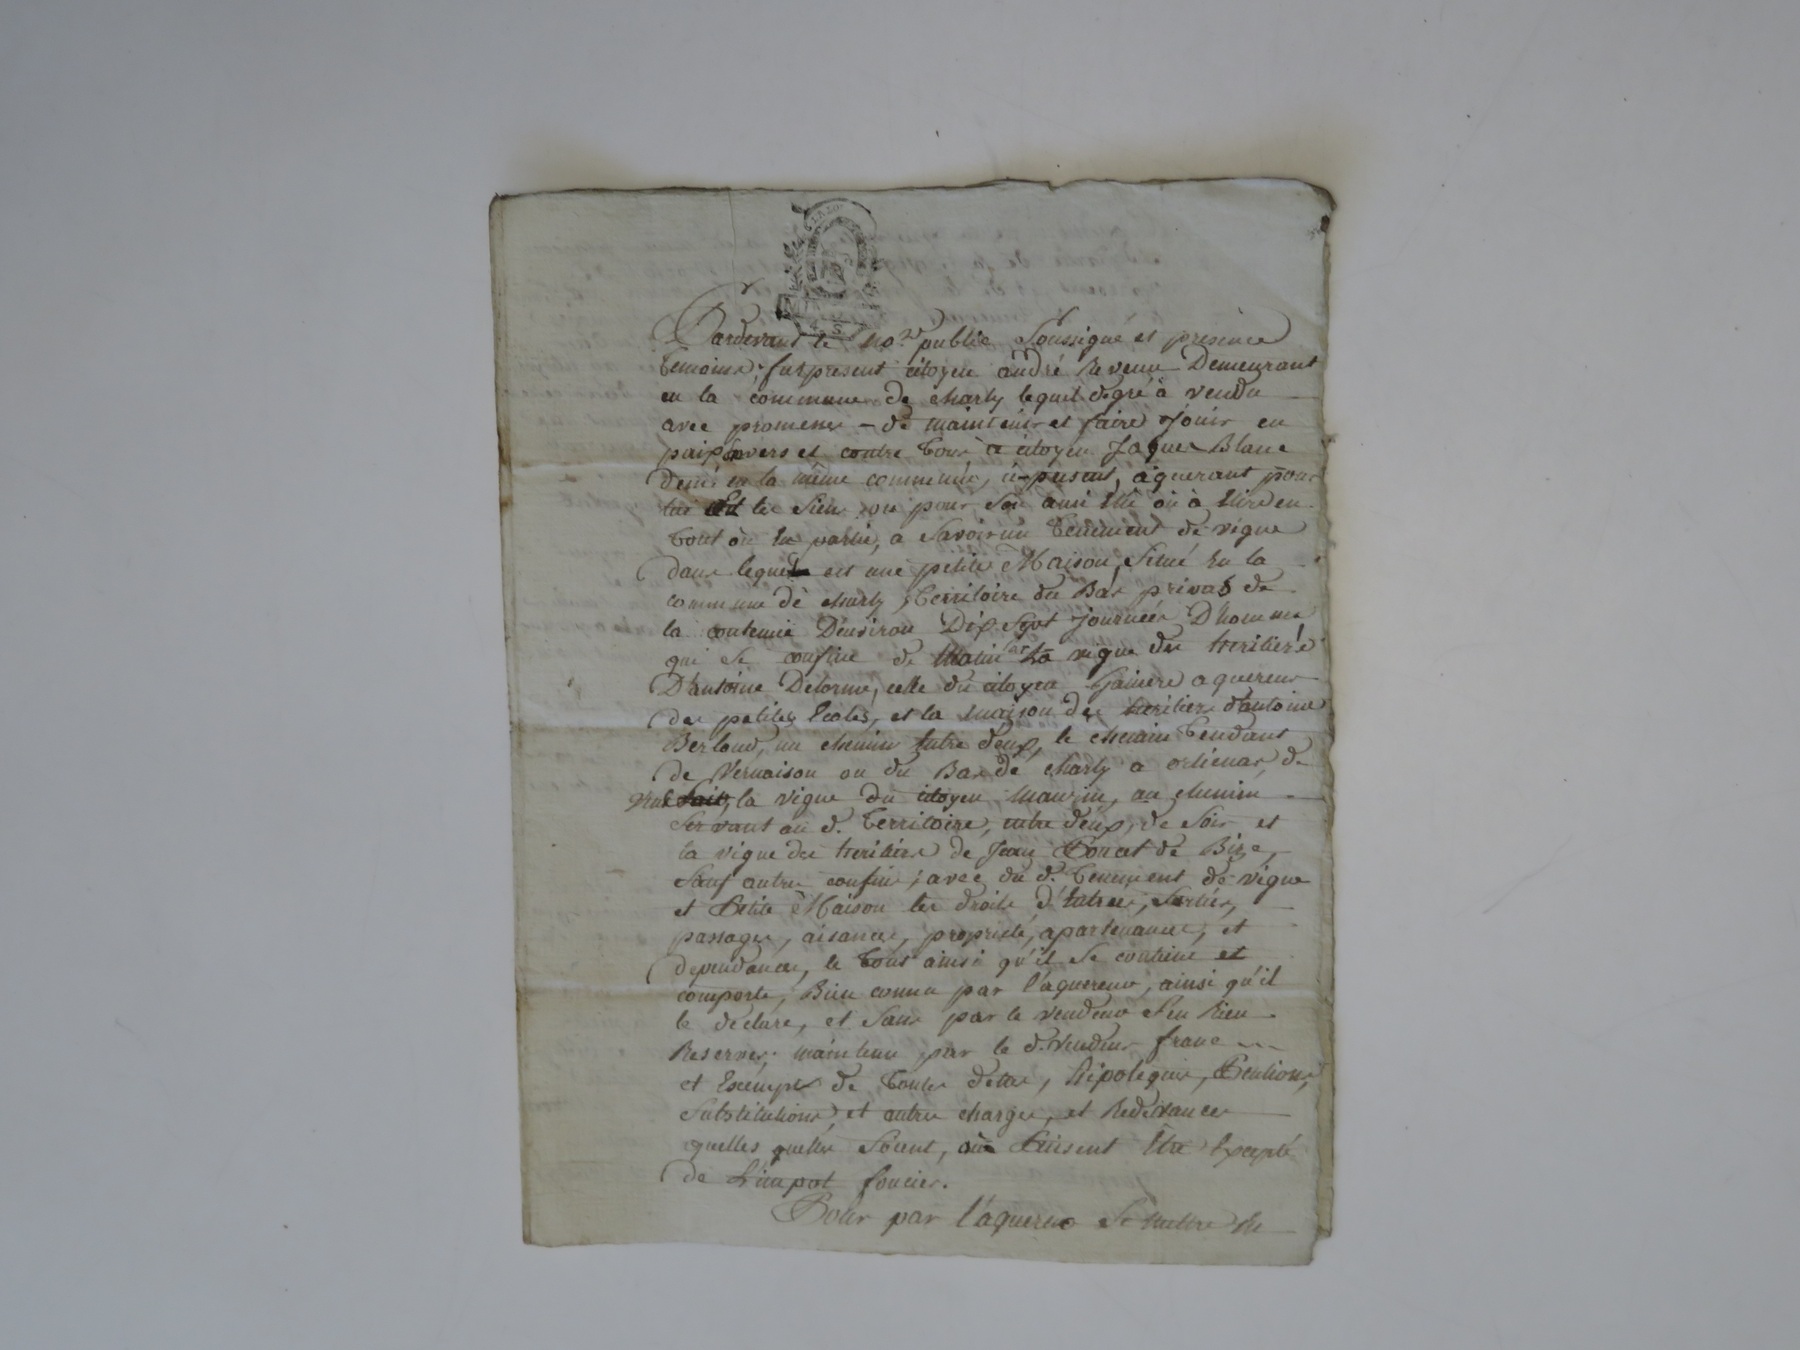 Pardevant le no.re public Soussigné et présence
temoins, fut present citoyen andré Revenu Demeurant
en la commune de charly lequel de gré à vendu
avec promesses - de maintenir et faire Jouir en
paix Envers et contre tous à citoyen Jaques Blanc
demt en la même commune, ci-présent, aquerant pour
lui et les Siens ou pour Son ami Elu où à Elire en
tout où En partie, a Savoir un tenement de vigne
dans lequel est une petite Maison, Situé En la
commune dè charly, territoire du Bas privas de
la contenue D'environ Dix Sept Journées D'homme
qui Se confine de matin la vigne des heritiers
D'antoine Delorme, celle du citoyen aquereur
des petites Ecoles, et la maison des heritiers d'antoine
Berloud, un chemin Entre deux, le chemin tendant
de Vernaison ou du Bas de charly a orliénas, de
la vigne du citoyen un chemin
Servant au d. territoire, entre deux, de Soir et
la vigne des heritiers de Jean Poncet de Bize,
Sauf autres confins; avec du d. tenement de vigne
et Petite Maison les droits d'Entrées, Sorties,
passages, aisances, proprieté, apartenances, et
dependances, le tout ainsi qu'il Se contient et
comporte, Bien connu par l'aquereur, ainsi qu'il
le déclare, et Sans par le vendeur S'en Rien
Reserver. maintenu par le d. vendeur franc
et Exempt de toutes dettes, hipoteques, Pentions,
Substitutions, et autres charges, et Redevances
quelles quelles Soient, où Puisent Etre Excepté
de L'impot foncier.
Pour par l'aquereur Se mettre En